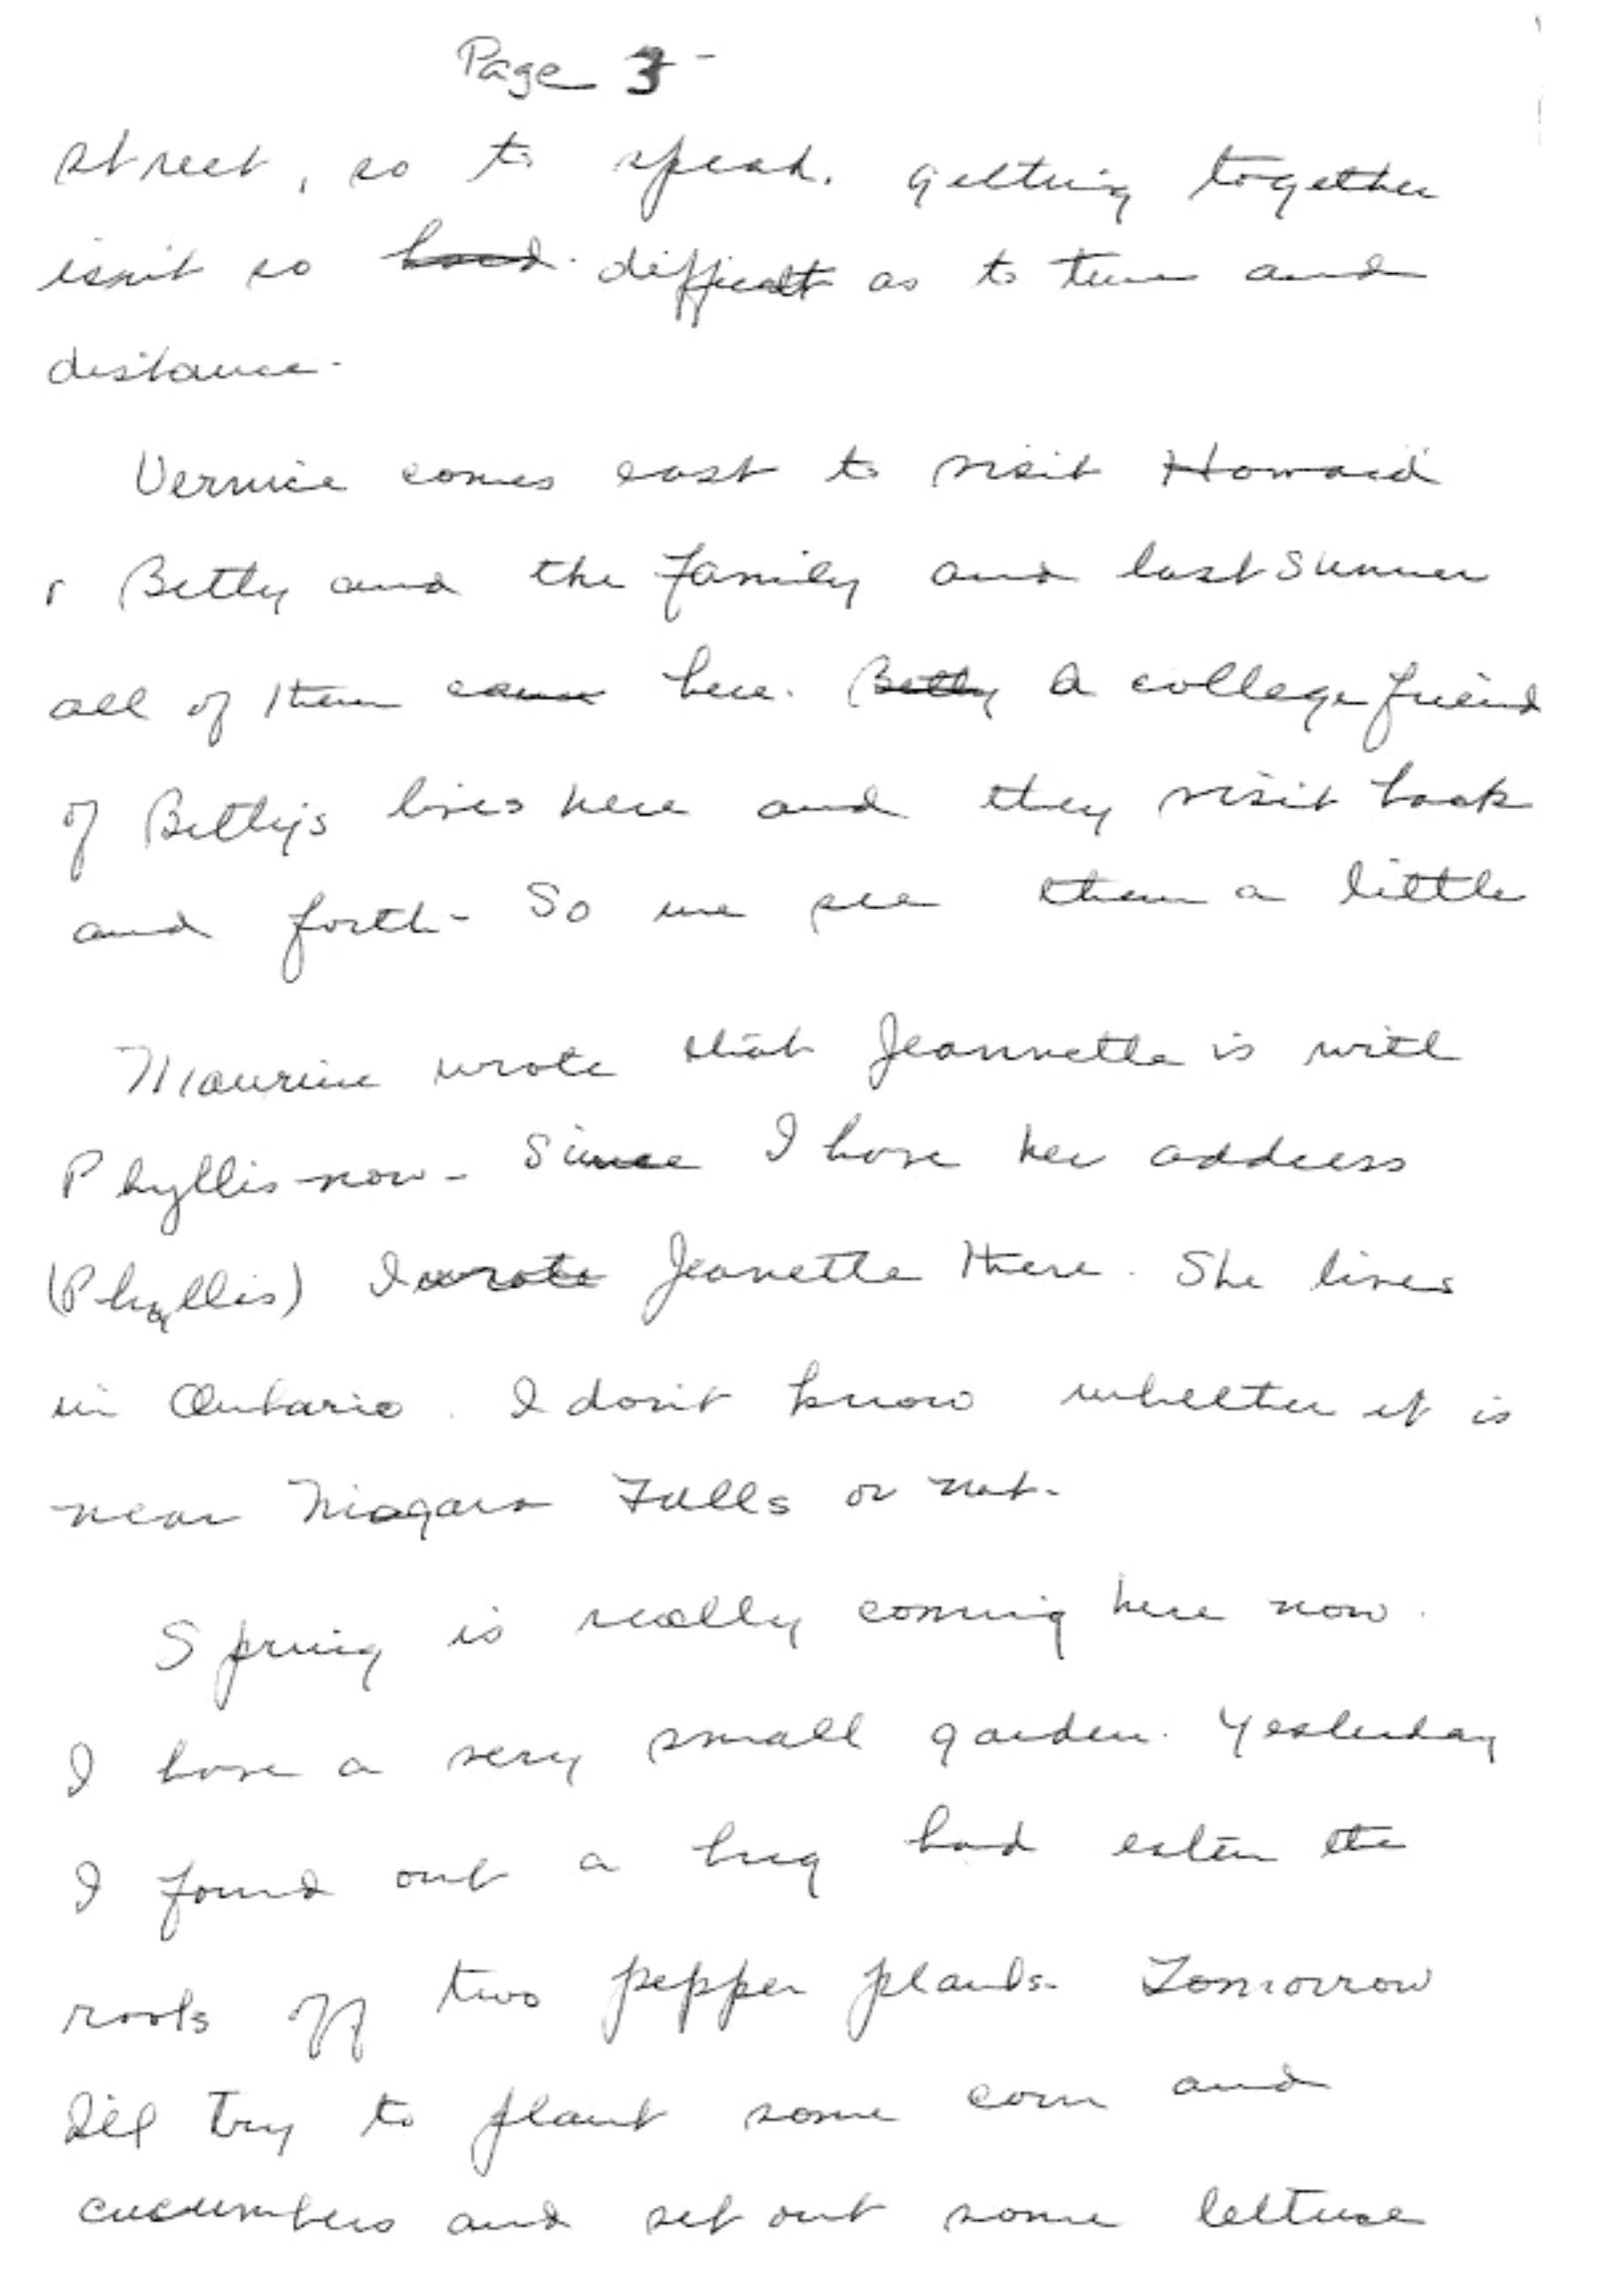 Page 3-
street, so to speak. Getting together
isn't so hard. difficult as to time and
distance-
Vernice comes east to visit Howard
& Betty and the family and last summer
all of them came here. Betty a college friend
of Betty's lives here and they visit back
and forth- So we see them a little
Maurine wrote that Jeannette is with
Phyllis now- Since I have her address
(Phyllis) I wrote Jeanette there. She lives
in Ontario. I don't know whether it is
near Niagara Falls or not.
Spring is really coming here now.
I have a very small garden. Yesterday
I found out a bug had eaten the
roots off two pepper plants. Tomorrow
I'll try to plant some corn and
cucumbers and set out some lettuce